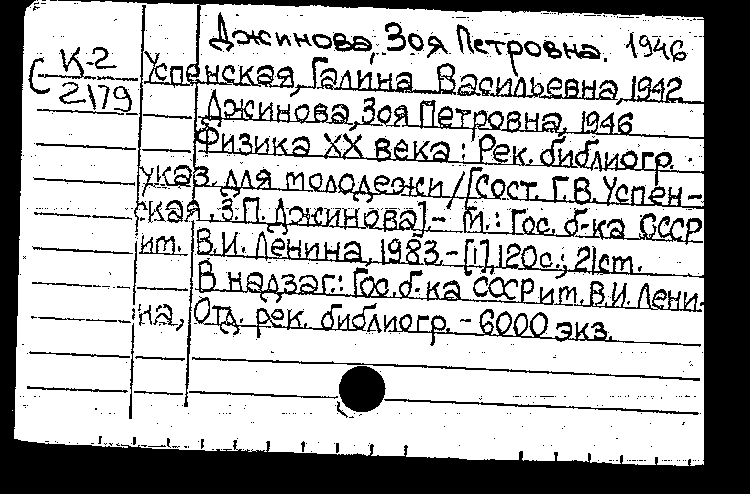 Джинова, Зоя Петровна. 1946
С К-2
2179
Успенская, Галина Васильевна, 1942
Джинова, Зоя Петровна, 1946
Физика XX века : Рек. библиогр.
указ. для молодежи / [Сост. Г.В. Успен-
ская, З.П. Джинова]. - М.: Гос. б-ка СССР
им. В.И. Ленина, 1983. - [1], 120 с.; 21 см.
В надзаг.: Гос. б-ка СССР им. В.И. Лени-
на, Отд. рек. библиогр. - 6000 экз.